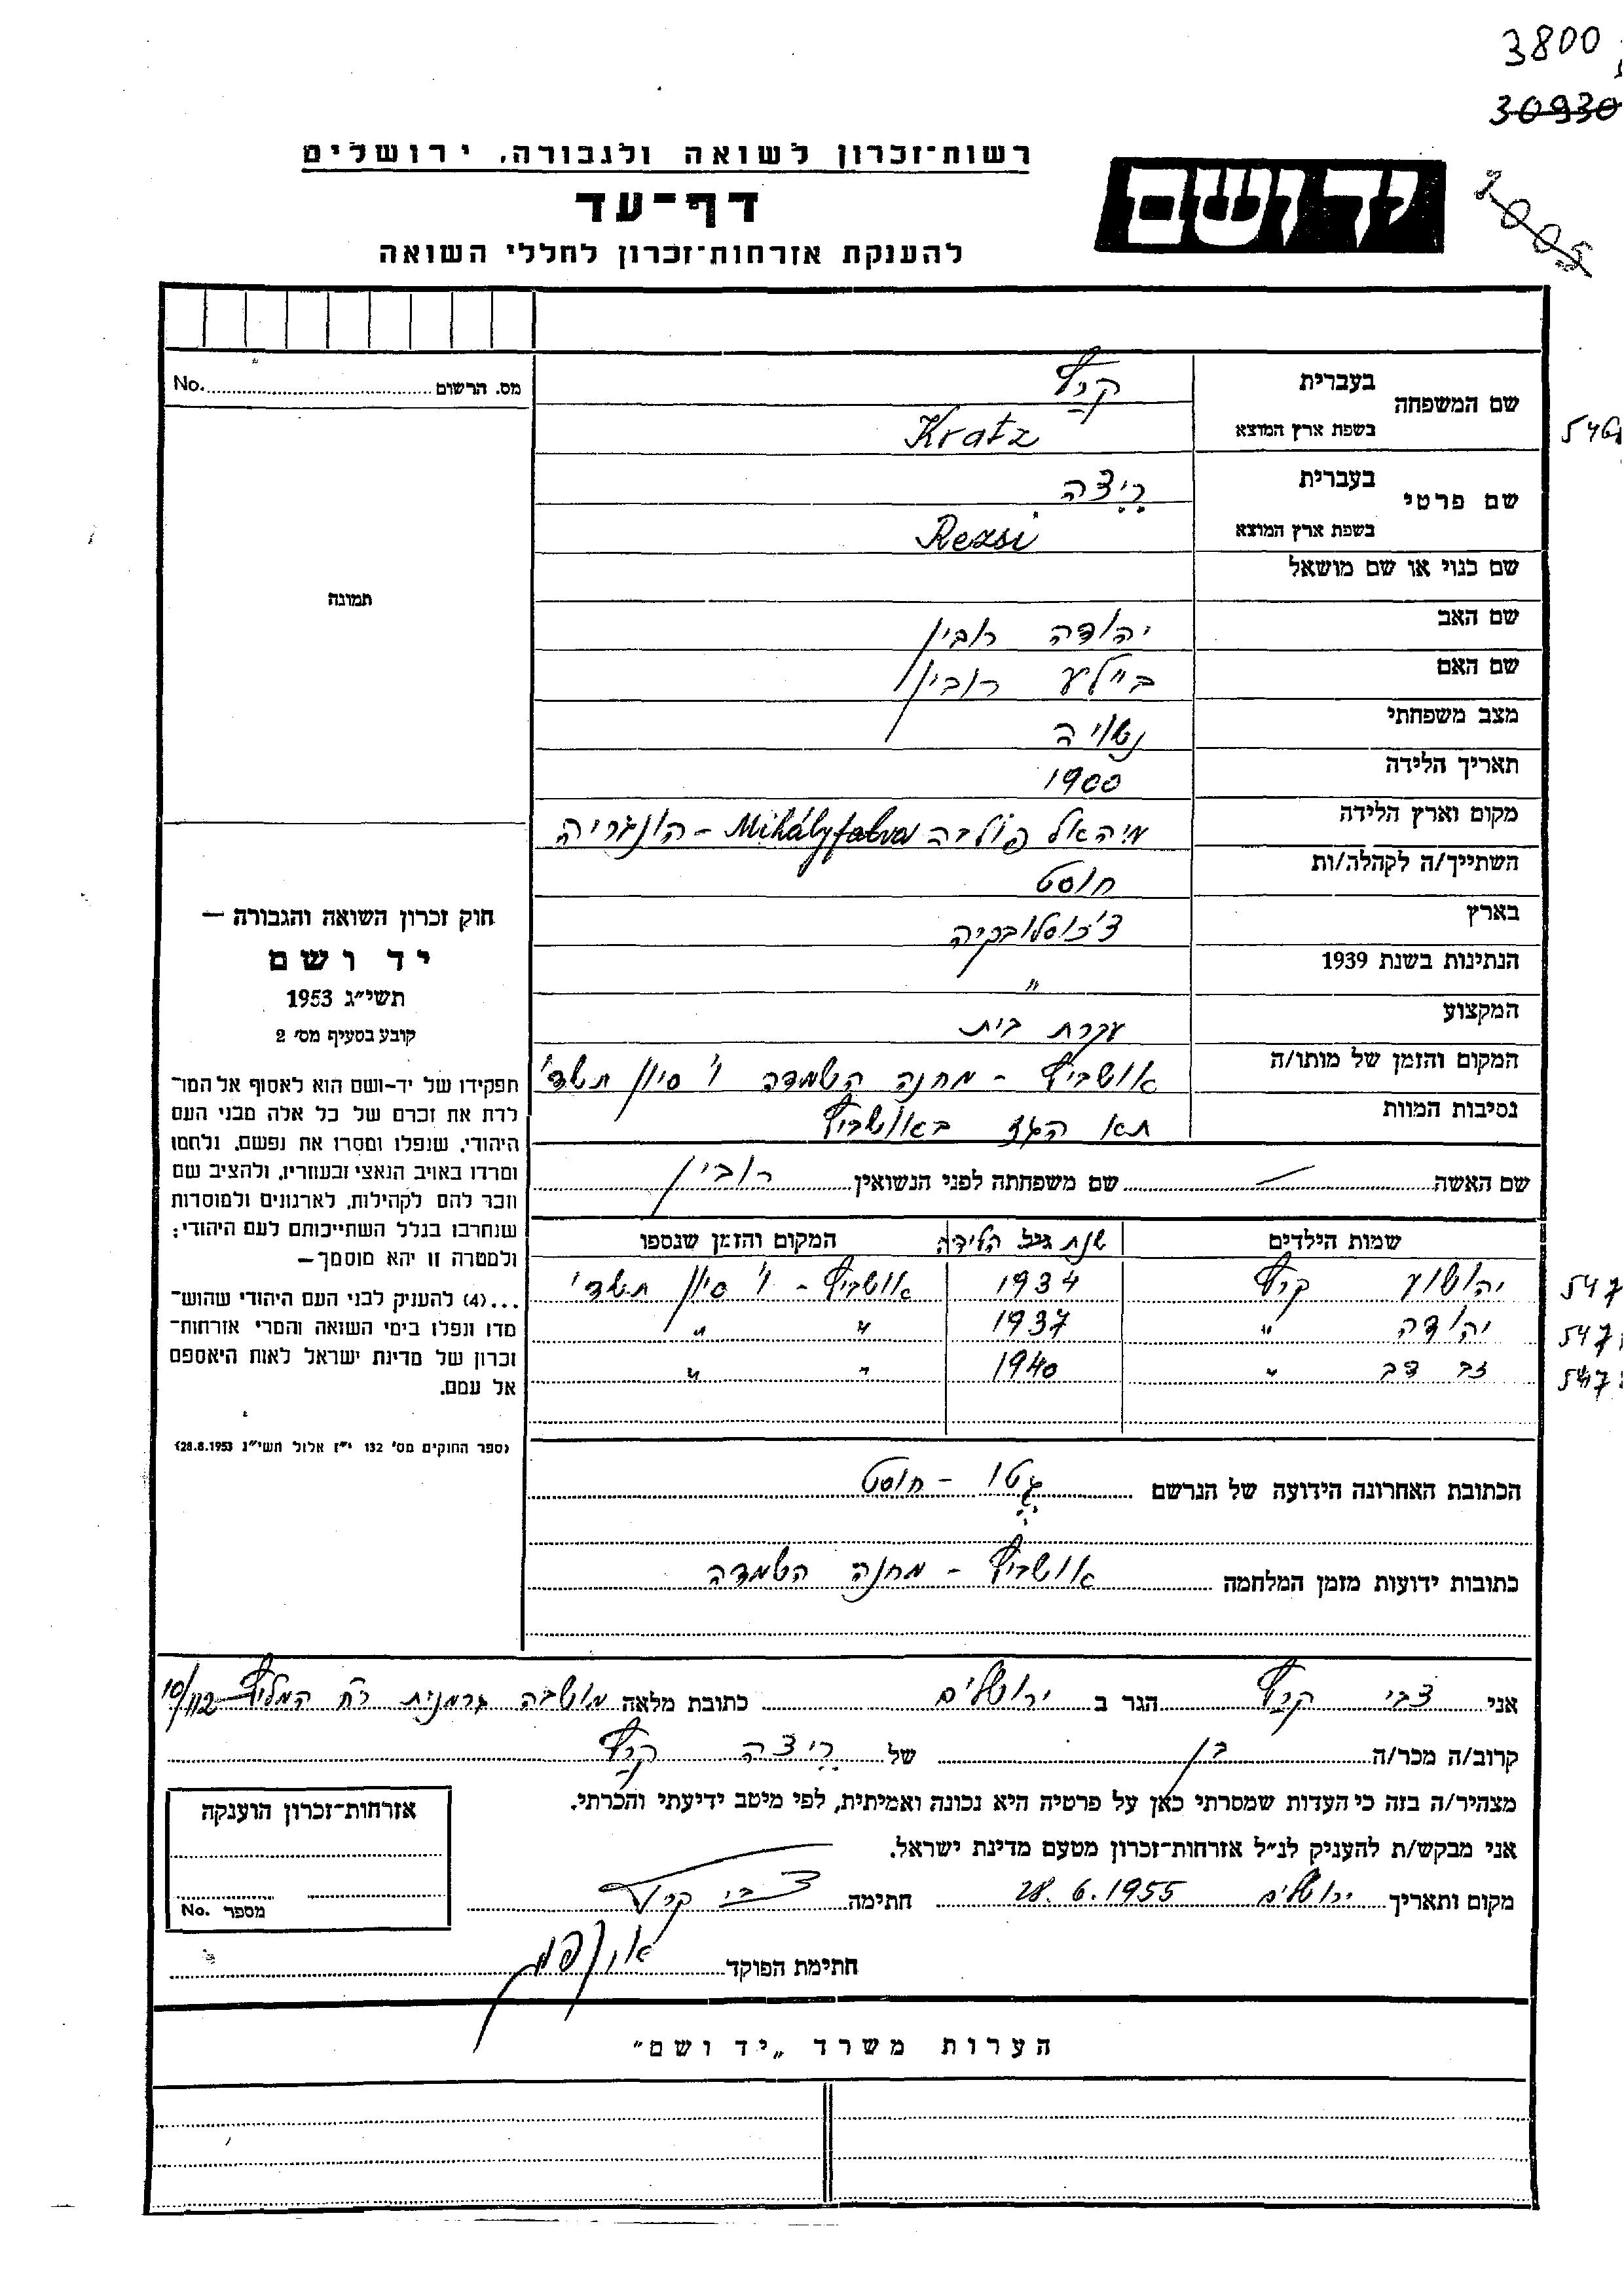 3800
30930
2005
רשות־זכרון לשואה ולגבורה, ירושלים
דף־עד
להענקת אזרחות־זכרון לחללי השואה
יד ושם
מס. הרשום No.
תמונה
שם המשפחה בעברית קרץ
בשפת ארץ המוצא Kratz
שם פרטי בעברית ריצה
בשפת ארץ המוצא Rezsi
שם כנוי או שם מושאל
שם האב יהודה רובין
שם האם ביילע רובין
מצב משפחתי נשויה
תאריך הלידה 1900
מקום וארץ הלידה מיהאל פולבה Mihályfalva - הונגריה
השתייך/ה לקהלה/ות חוסט
בארץ צ'כוסלובקיה
הנתינות בשנת 1939 "
המקצוע עקרת בית
המקום והזמן של מותו/ה אושביץ - מחנה השמדה ו' סיון תשד'
נסיבות המוות תא הגז באושביץ
שם האשה — שם משפחתה לפני הנשואין רובין
שמות הילדים שנת הלידה המקום והזמן שנספו
יהושוע קרץ 1934 אושביץ - ו' סיון תשד' 547
יהודה " 1937 " " 547
זב דב " 1940 " " 547
הכתובת האחרונה הידועה של הנרשם גטו - חוסט
כתובות ידועות מזמן המלחמה אושביץ - מחנה השמדה
חוק זכרון השואה והגבורה —
יד ושם
תשי״ג 1953
קובע בסעיף מס׳ 2
תפקידו של יד-ושם הוא לאסוף אל המו־
לדת את זכרם של כל אלה מבני העם
היהודי, שנפלו ומסרו את נפשם, נלחמו
ומרדו באויב הנאצי ובעוזריו, ולהציב שם
וזכר להם לקהילות, לארגונים ולמוסדות
שנחרבו בגלל השתייכותם לעם היהודי;
ולמטרה זו יהא מוסמך—
...(4) להעניק לבני העם היהודי שהוש־
מדו ונפלו בימי השואה והמרי אזרחות־
זכרון של מדינת ישראל לאות היאספם
אל עמם.
(ספר החוקים מס׳ 132 י״ז אלול תשי״ג 28.8.1953)
אני צבי קרץ הגר ב ירושלים כתובת מלאה מושבה גרמנית רח המליץ 10/112
קרוב/ה מכר/ה בן של ריצה קרץ
מצהיר/ה בזה כי העדות שמסרתי כאן על פרטיה היא נכונה ואמיתית, לפי מיטב ידיעתי והכרתי.
אני מבקש/ת להעניק לנ״ל אזרחות־זכרון מטעם מדינת ישראל.
מקום ותאריך ירושלים 28.6.1955 חתימה צבי קרץ
חתימת הפוקד
אזרחות־זכרון הוענקה
מספר No.
הערות משרד „יד ושם"